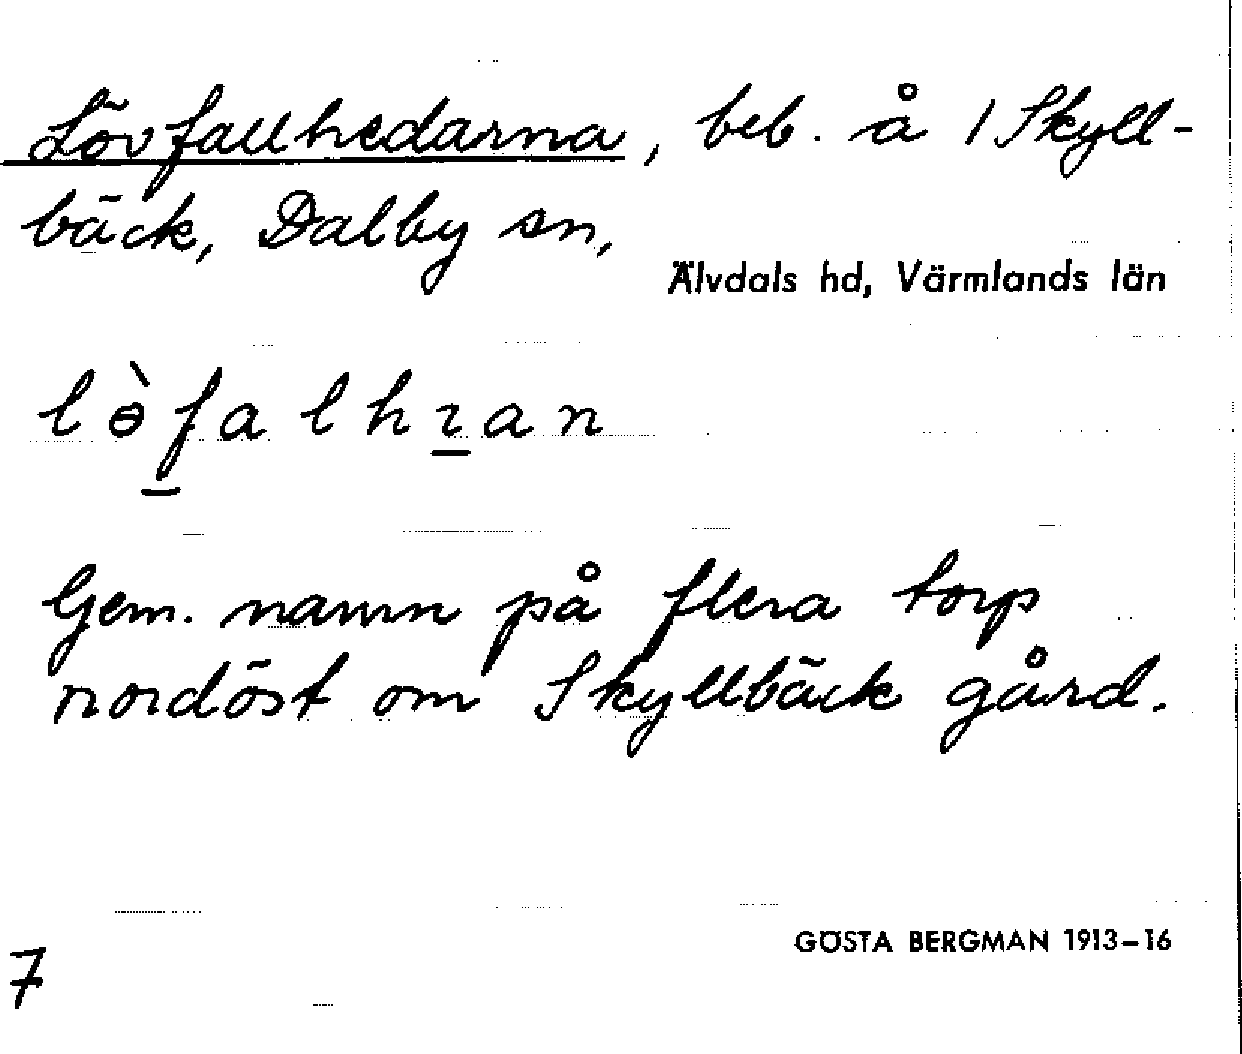 Lövfallhedarna, beb. å 1 Skyll-
bäck, Dalby sn,
Älvdals hd, Värmlands län
l ɵ̀ f a l h ɿ a n
Gem. namn på flera torp
nordöst om Skyllbäck gård.
GÖSTA BERGMAN 1913-16
7